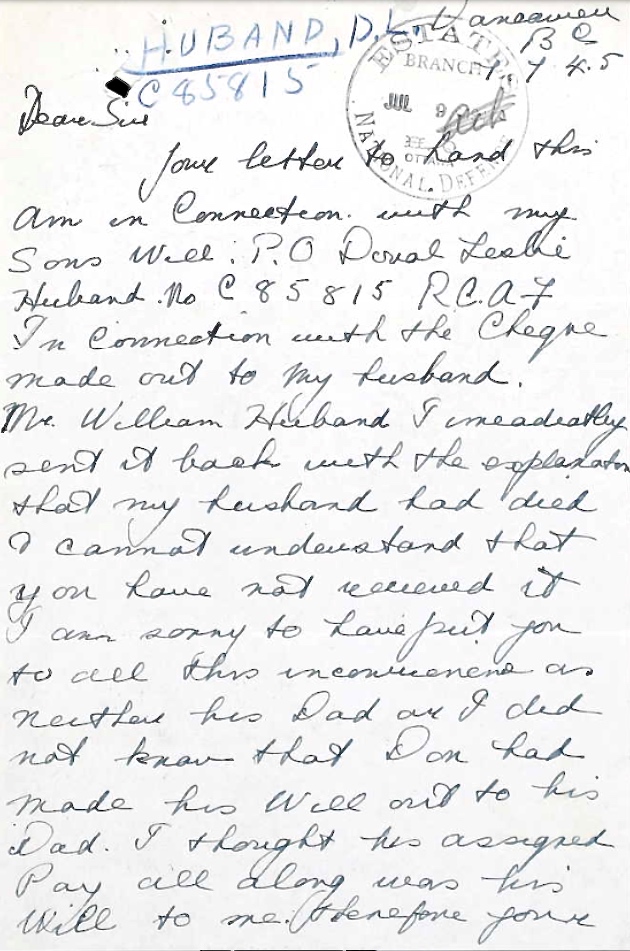 HUBAND, D.L.
C85815
Vancouver
B C
7 7 45
ESTATES
BRANCH
JUL 9
OTTAWA
NATIONAL DEFENCE
Dear Sir
Your letter to hand this
am in Connection. with my
Sons Will. P.O Donal Leslie
Huband. No C 85815 R.C.A.F
In Connection with the Cheque
made out to my husband.
Mr. William Huband I imeadiatley
sent it back with the explanation
that my husband had died
I cannot understand that
you have not received it
I am sorry to have put you
to all this inconvenience as
neither his Dad or I did
not know that Don had
made his Will out to his
Dad. I thought his assigned
Pay all along was his
Will to me. therefore your